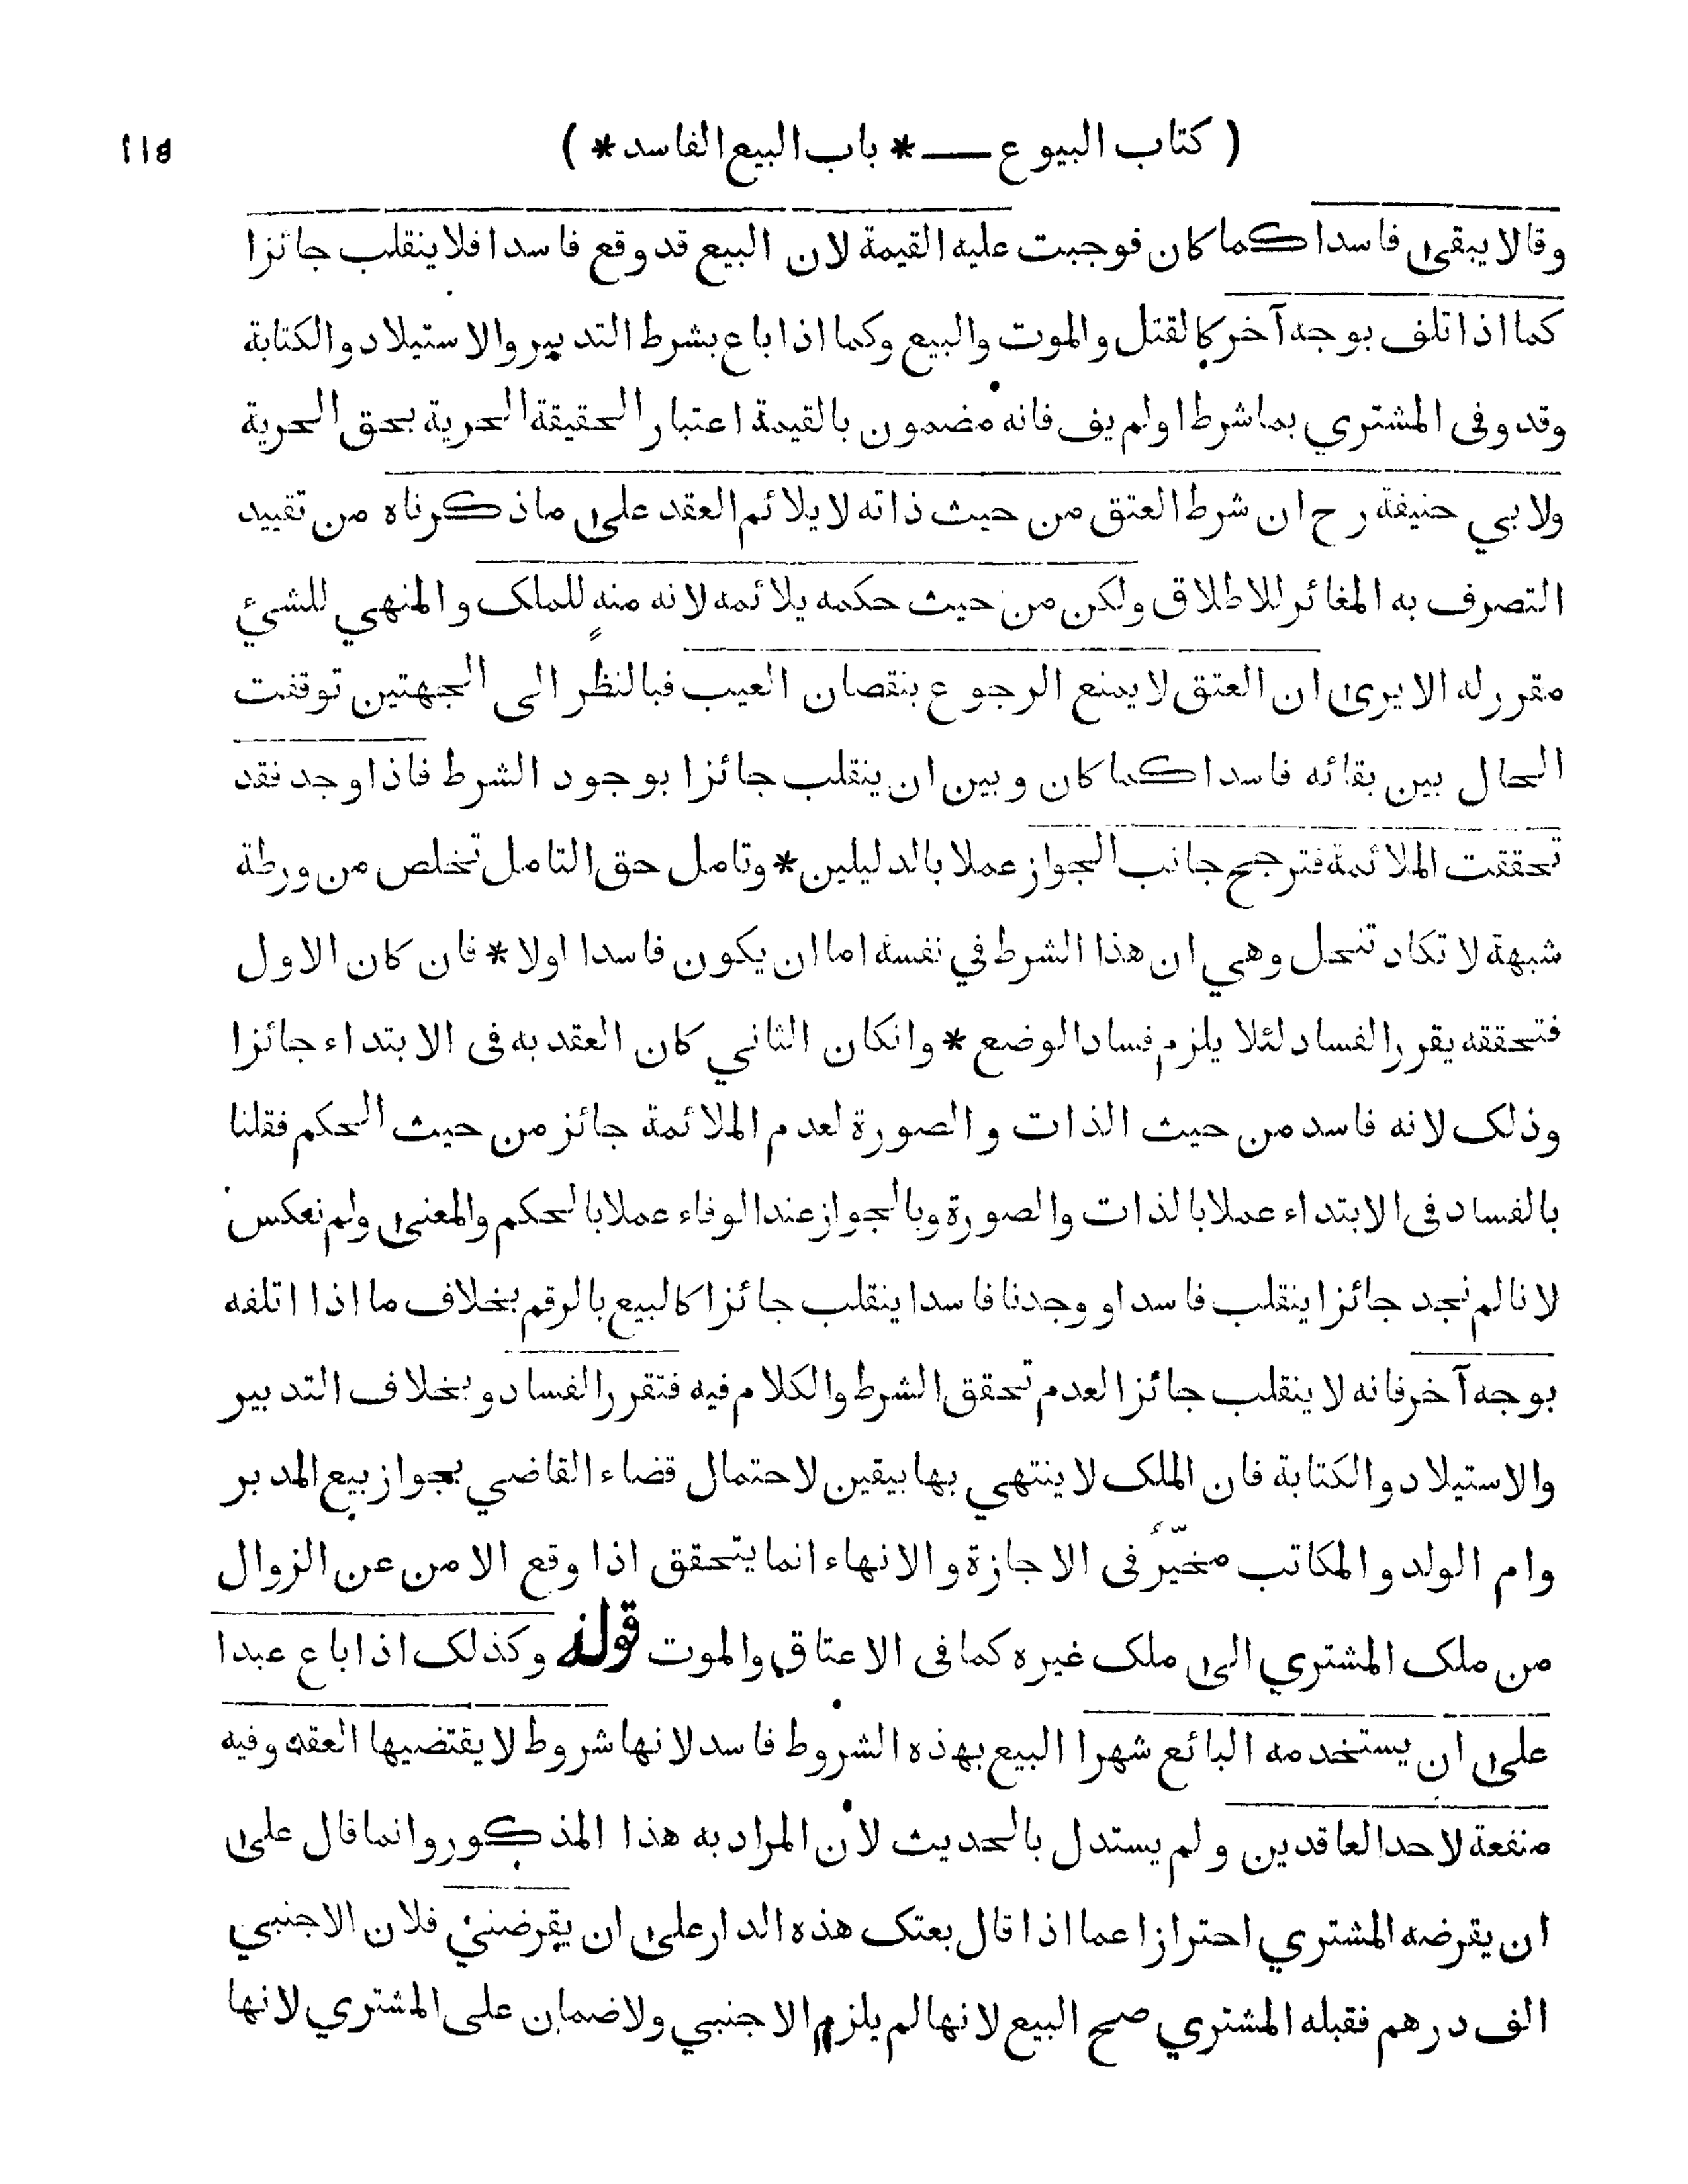 ( كتاب البيوع — * باب البيع الفاسد * )
وقالا يبقى فاسدا كما كان فوجبت عليه القيمة لان البيع قد وقع فاسدا فلا ينقلب جائزا
كما اذا تلف بوجه آخر كالقتل والموت والبيع وكما اذا باع بشرط التدبير والاستيلاد والكتابة
وقد وفى المشتري بما شرط اولم يف فانه مضمون بالقيمة اعتبارا لحقيقة الحرية بحق الحرية
ولابي حنيفة رح ان شرط العتق من حيث ذاته لا يلائم العقد على ما ذكرناه من تقييد
التصرف به المغائر للاطلاق ولكن من حيث حكمه يلائمه لانه منه للملك والمنهي للشيء
مقرر له الا يرى ان العتق لا يمنع الرجوع بنقصان العيب فبالنظر الى الجهتين توقفت
الحال بين بقائه فاسدا كما كان وبين ان ينقلب جائزا بوجود الشرط فاذا وجد فقد
تحققت الملائمة فترجح جانب الجواز عملا بالدليلين * وتامل حق التامل تخلص من ورطة
شبهة لا تكاد تنحل وهي ان هذا الشرط في نفسه اما ان يكون فاسدا اولا * فان كان الاول
فتحققه يقرر الفساد لئلا يلزم فساد الوضع * وانكان الثاني كان العقد به فى الابتداء جائزا
وذلك لانه فاسد من حيث الذات والصورة لعدم الملائمة جائز من حيث الحكم فقلنا
بالفساد فى الابتداء عملا بالذات والصورة وبالجواز عند الوفاء عملا بالحكم والمعنى ولم نعكس
لانا لم نجد جائزا ينقلب فاسدا ووجدنا فاسدا ينقلب جائزا كالبيع بالرقم بخلاف ما اذا اتلفه
بوجه آخر فانه لا ينقلب جائزا لعدم تحقق الشرط والكلام فيه فتقرر الفساد وبخلاف التدبير
والاستيلاد والكتابة فان الملك لا ينتهي بها بيقين لاحتمال قضاء القاضي بجواز بيع المدبر
وام الولد والمكاتب مخيّر فى الاجازة والانهاء انما يتحقق اذا وقع الامن عن الزوال
من ملك المشتري الى ملك غيره كما فى الاعتاق والموت قوله وكذلك اذا باع عبدا
على ان يستخدمه البائع شهرا البيع بهذه الشروط فاسد لانها شروط لا يقتضيها العقد وفيه
منفعة لاحد العاقدين ولم يستدل بالحديث لان المراد به هذا المذكور وانما قال على
ان يقرضه المشتري احترازا عما اذا قال بعتك هذه الدار على ان يقرضني فلان الاجنبي
الف درهم فقبله المشتري صح البيع لانها لم يلزم الاجنبي ولا ضمان على المشتري لانها